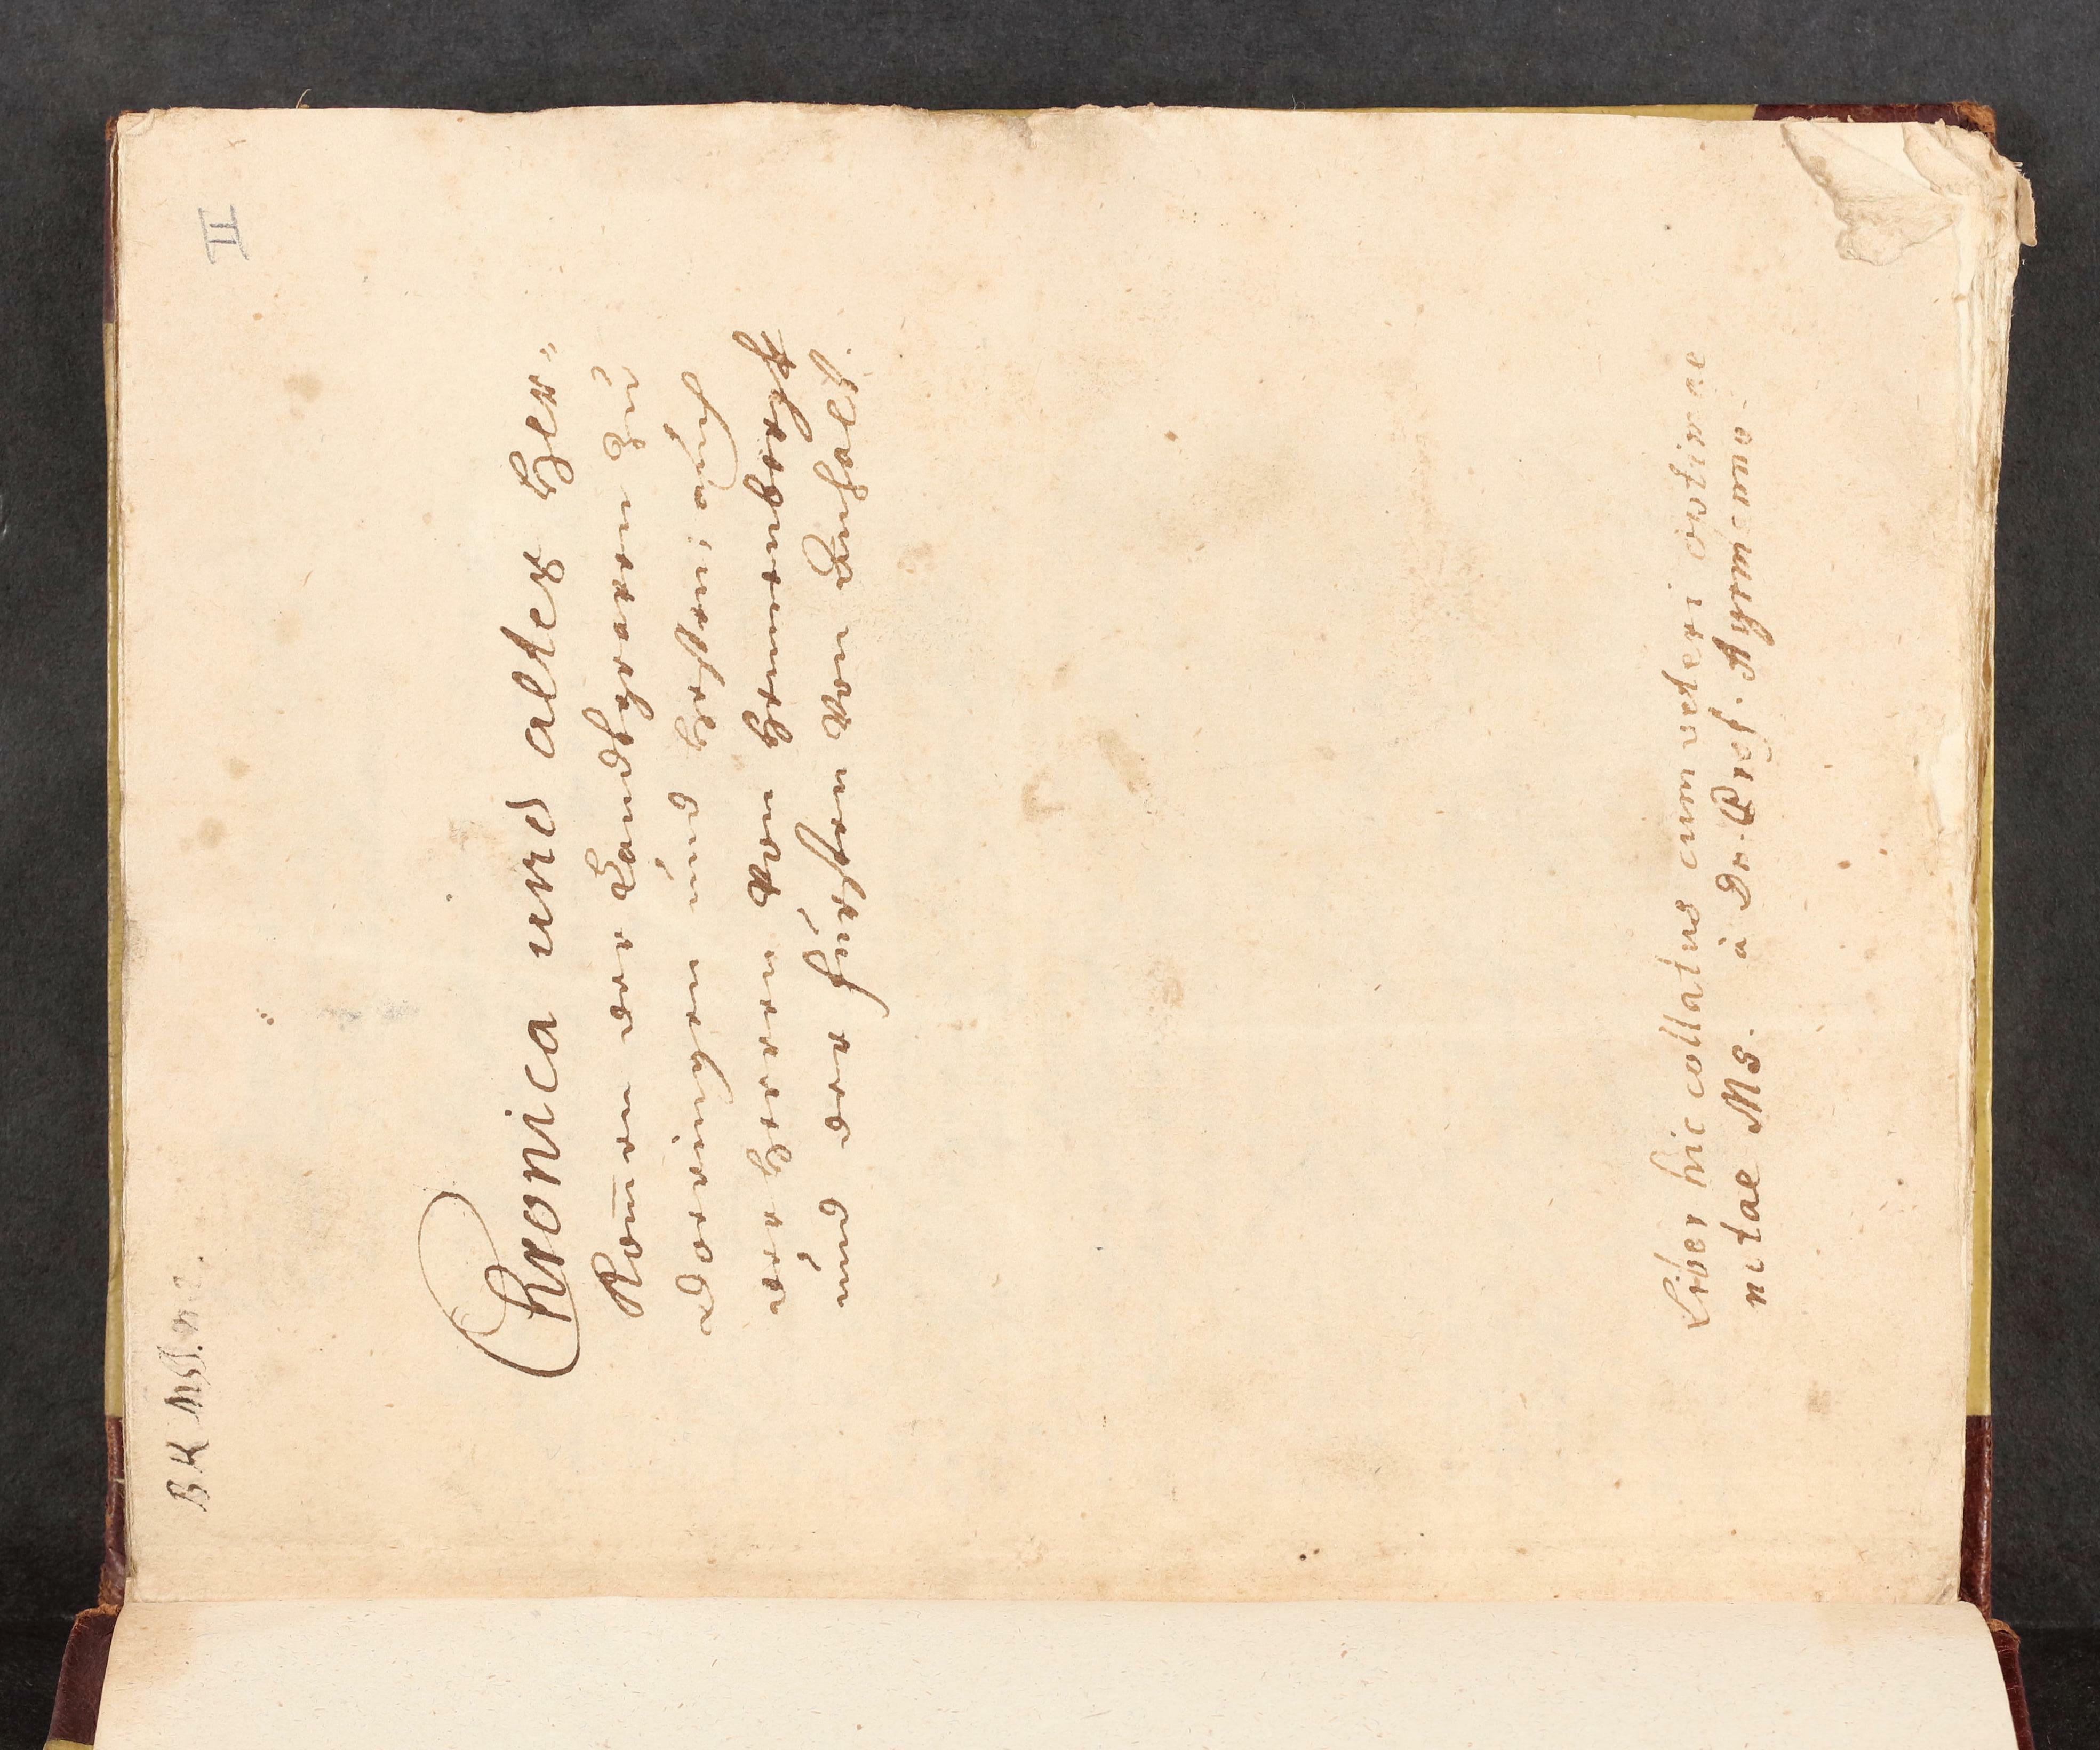 B H Mss. n. 2.
II
Chronica und alter Her-
kom̅en der Landtgraven zu
Doeringen und Hessen; auch
der Herren von Hennenbergk
und der fursten von Anhalt.
Liber hic collatus cum veteri optimae
notae Ms. à Dn. Prof. Ayrmanno.